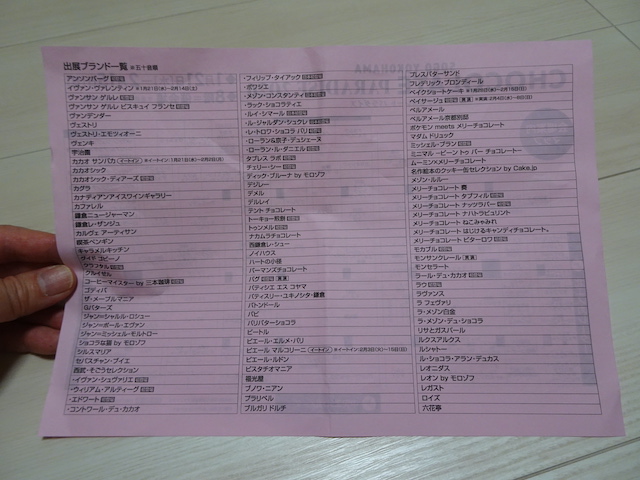 出展ブランド一覧 ※五十音順
アンソンバーグ 初登場
イヴァン・ヴァレンティン ※1月21日(水)〜2月14日(土)
ヴァンサン ゲルレ 初登場
ヴァンサン ゲルレ ビスキュイ フランセ 初登場
ヴァンデンダー
ヴェストリ
ヴェストリ・エモツィオーニ
ヴェンキ
宇治園
カカオ サンパカ イートイン ※イートイン:1月21日(水)〜2月2日(月)
カカオシック
カカオシック・ディアーズ 初登場
カグラ
カナディアンアイスワインギャラリー
カファレル
鎌倉ニュージャーマン
鎌倉レ・ザンジュ
カルヴェ アーティサン
喫茶ペンギン
キャラメルキッチン
グイド ゴビーノ
クルイゼル
コーヒーマイスター by 三本珈琲 初登場
ゴディバ
ザ・メープルマニア
Gバターズ
ジャン=シャルル・ロシュー
ジャン=ポール・エヴァン
ジャン=ミッシェル・モルトロー
ショコラな館 by モロゾフ
シルスマリア
セバスチャン・ブイエ
西武・そごうセレクション
・イヴァン・シュヴァリエ 初登場
・ウィリアム・アルティーグ 初登場
・エドワート 初登場
・コントワール・デュ・カカオ
・フィリップ・タイアック 日本初登場
・ボワシエ
・メゾン・コンスタンティ 日本初登場
・ラック・ショコラティエ
・ルイ・シマール 日本初登場
・ル・ジャルダン・シュクレ 日本初登場
・レ・トロワ・ショコラ パリ 初登場
・ローラン&京子・デュシェーヌ
・ローラン・ル・ダニエル 初登場
タブレス ラボ 初登場
チェリー・シー 初登場
ディック・ブルーナ by モロゾフ
デジレー
デメル
デルレイ
テント チョコレート
トーキョー煎餅 初登場
トゥンメル 初登場
ナカムラチョコレート
西鎌倉レ・シュー
ノイハウス
ハートの小径
バーマンズチョコレート
パグ 初登場 実演
パティシエ エス コヤマ
パティスリー・ユキノシタ・鎌倉
バトンドール
パピ
バリバターショコラ
ビートル
ピエール・エルメ・パリ
ピエール マルコリーニ イートイン ※イートイン:2月3日(火)〜15日(日)
ピエール・ルドン
ピスタチオマニア
福光屋
ブノワ・ニアン
プラリベル
ブルガリ ドルチ
プレスバターサンド
フレデリック・ブロンディール
ベイクショートケーキ ※1月28日(水)〜2月15日(日)
ベイサージュ 実演 初登場
ベルアメール
ベルアメール京都別邸
ポケモン meets メリーチョコレート
マダム ドリュック
ミッシェル・ブラン 初登場
ミニマル -ビーン トゥ バー チョコレート-
ムーミン×メリーチョコレート
名作絵本のクッキー缶セレクション by Cake.jp
メゾン・ルルー
メリーチョコレート 奏
メリーチョコレート タプフィル 初登場
メリーチョコレート ナッツラバー 初登場
メリーチョコレート ナハトラビュリント
メリーチョコレート ねこみゃみれ
メリーチョコレート はじけるキャンディチョコレート。
メリーチョコレート ビターロワ 初登場
モカブル 初登場
モンサンクレール 実演
モンセラート
ラール・デュ・カカオ 初登場
ラウ 初登場
ラヴァンス
ラ フェヴァリ
ラ・メゾン白金
ラ・メゾン・デュ・ショコラ
リサとガスパール
ルクスアルクス
ルシャトー
ル・ショコラ・アラン・デュカス
レオニダス
レオン by モロゾフ
レガスト
ロイズ
六花亭